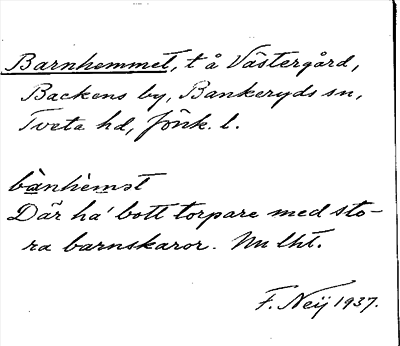 Barnhemmet, t å Västergård,
Backens by, Bankeryds sn,
Tveta hd, Jönk. l.
bànhèmət
Där ha' bott torpare med sto-
ra barnskaror. Nu lht.
F. Neij 1937.